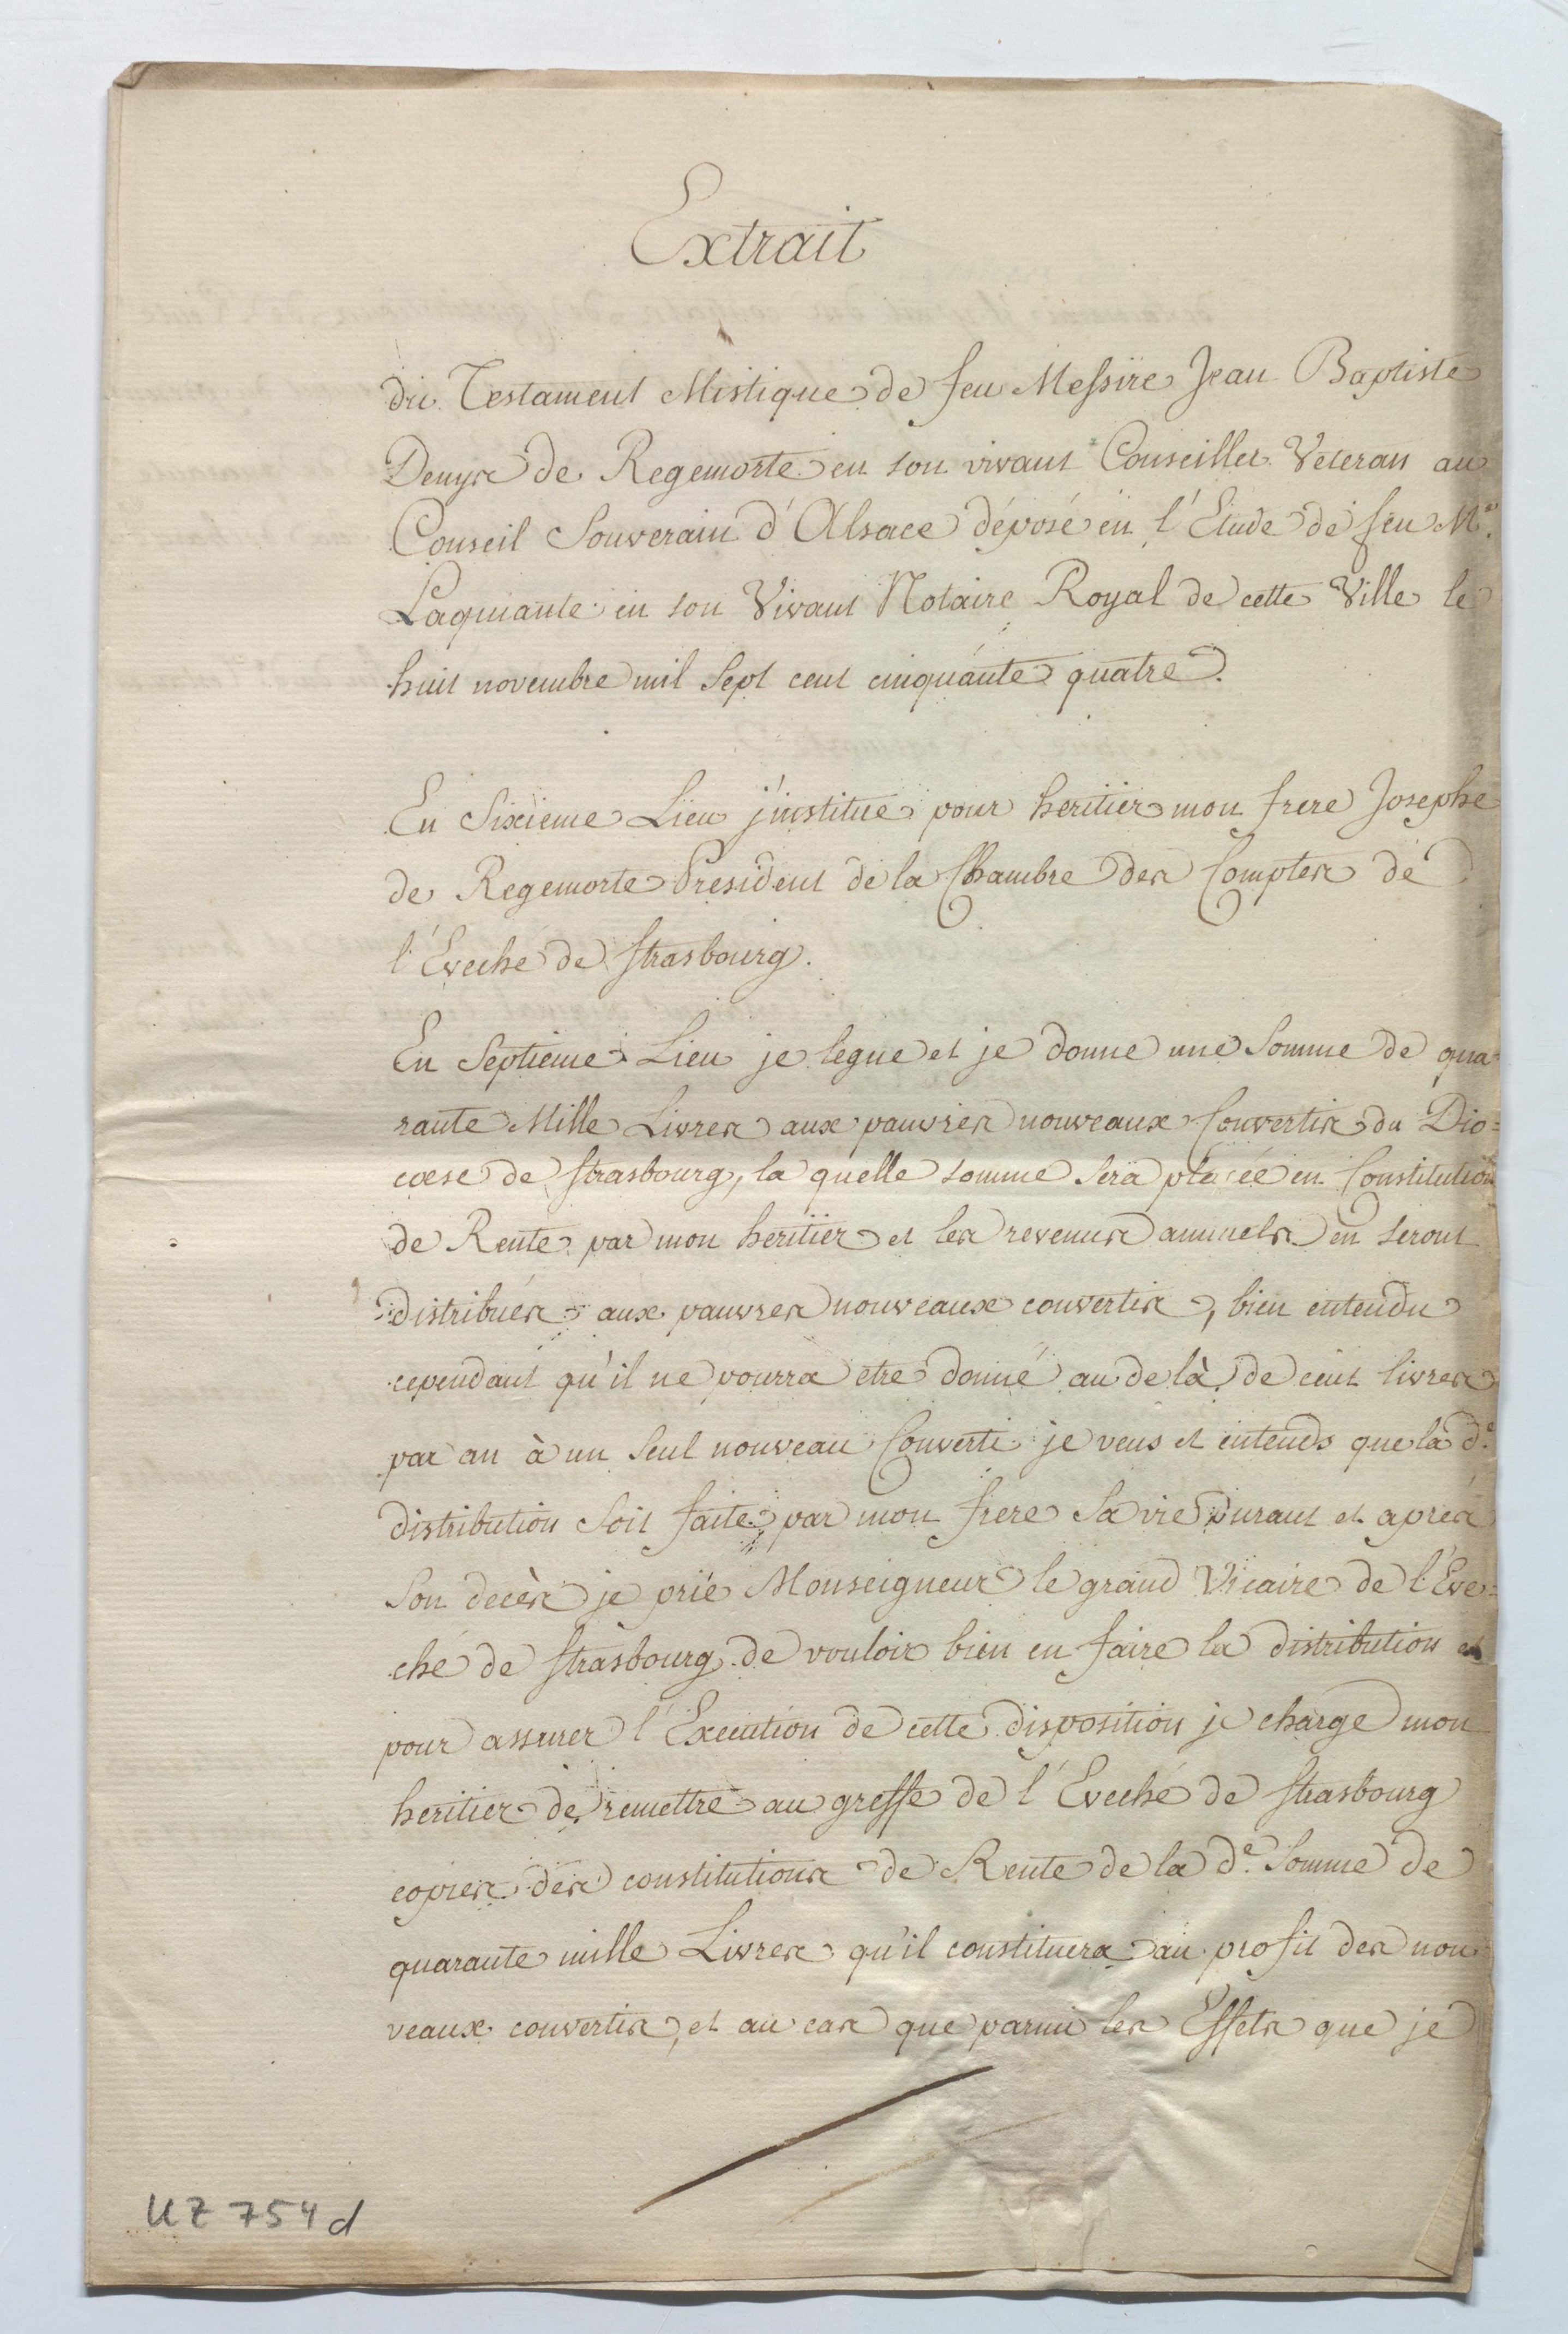 Extrait
du Testament Mistique de feu Messire Jean Baptiste
Denys de Regemorte en son vivant Conseiller Veteran au
Conseil Souverain d'Alsace déposé en l'Etude de feu Me.
Laquiante en son Vivant Notaire Royal de cette Ville le
huit novembre mil Sept cent cinquante quatre.
En Sixieme Lieu j'institue pour heritier mon frere Josephe
de Regemorte President de la Chambre des Comptes de
l'Eveché de Strasbourg.
En Septieme Lieu je legue et je donne une Somme de qua=
rante Mille Livres aux pauvres nouveaux Convertis du Dio=
coese de Strasbourg, la quelle somme Sera placée en Constitution
de Rente par mon heritier et les revenus annuels en seront
distribués aux pauvres nouveaux convertis, bien entendu
cependant qu'il ne pourra etre donné au de là de cent livres
par an à un Seul nouveau Converti je veus et entends que la de.
distribution Soit faite par mon frere Sa vie Durant et après
Son decès je prie Monseigneur le grand Vicaire de l'Eve=
ché de Strasbourg de vouloir bien en faire la distribution et
pour assurer l'Execution de cette disposition je charge mon
heritier de remettre au greffe de l'Eveché de Strasbourg
copies des constitutions de Rente de la de. Somme de
quarante mille Livres qu'il constituera au profit des nou
veaux convertis, et au cas que parmi les Effets que je
UZ 754 d